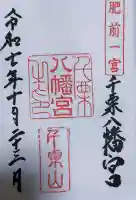 肥前一宮
千栗八幡宮
八幡宮
千栗山
令和七年十月二十三日